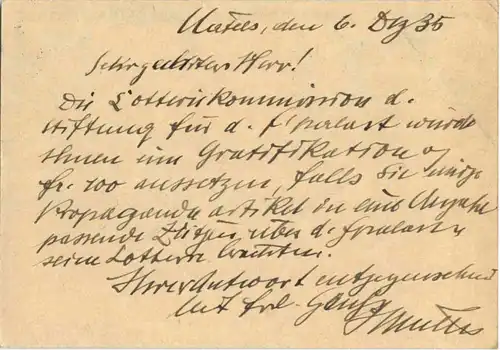 den 6. Dez 35
Sehr geehrter Herr!
Die Lotteriekommission d.
Stiftung für d. f'palast würde
Ihnen eine Gratifikation v.
fr. 100 aussetzen, falls Sie einige
Propaganda artikel in eine Anzahl
passende Zeitgn über d. fpalast u
seine Lotterie brächten.
Ihrer Antwort entgegensehend
Mit frdl. Gruss